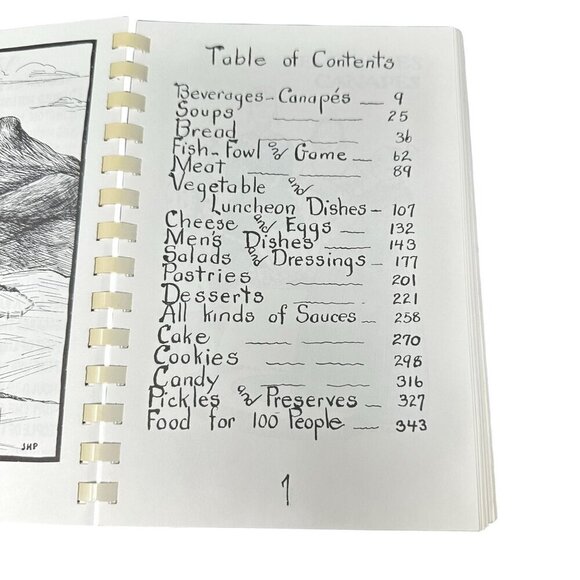 Table of Contents
Beverages-Canapés __ 9
Soups ____ ____ 25
Bread ____ ____ 36
Fish-Fowl and Game ____ 62
Meat ____ ____ 89
Vegetable and
Luncheon Dishes - 107
Cheese and Eggs __ 132
Men's Dishes ____ 143
Salads and Dressings - 177
Pastries ____ ____ 201
Desserts ____ 221
All kinds of Sauces __ 258
Cake ____ ____ 270
Cookies ____ ____ 298
Candy ____ ____ 316
Pickles and Preserves __ 327
Food for 100 People __ 343
JHP
1